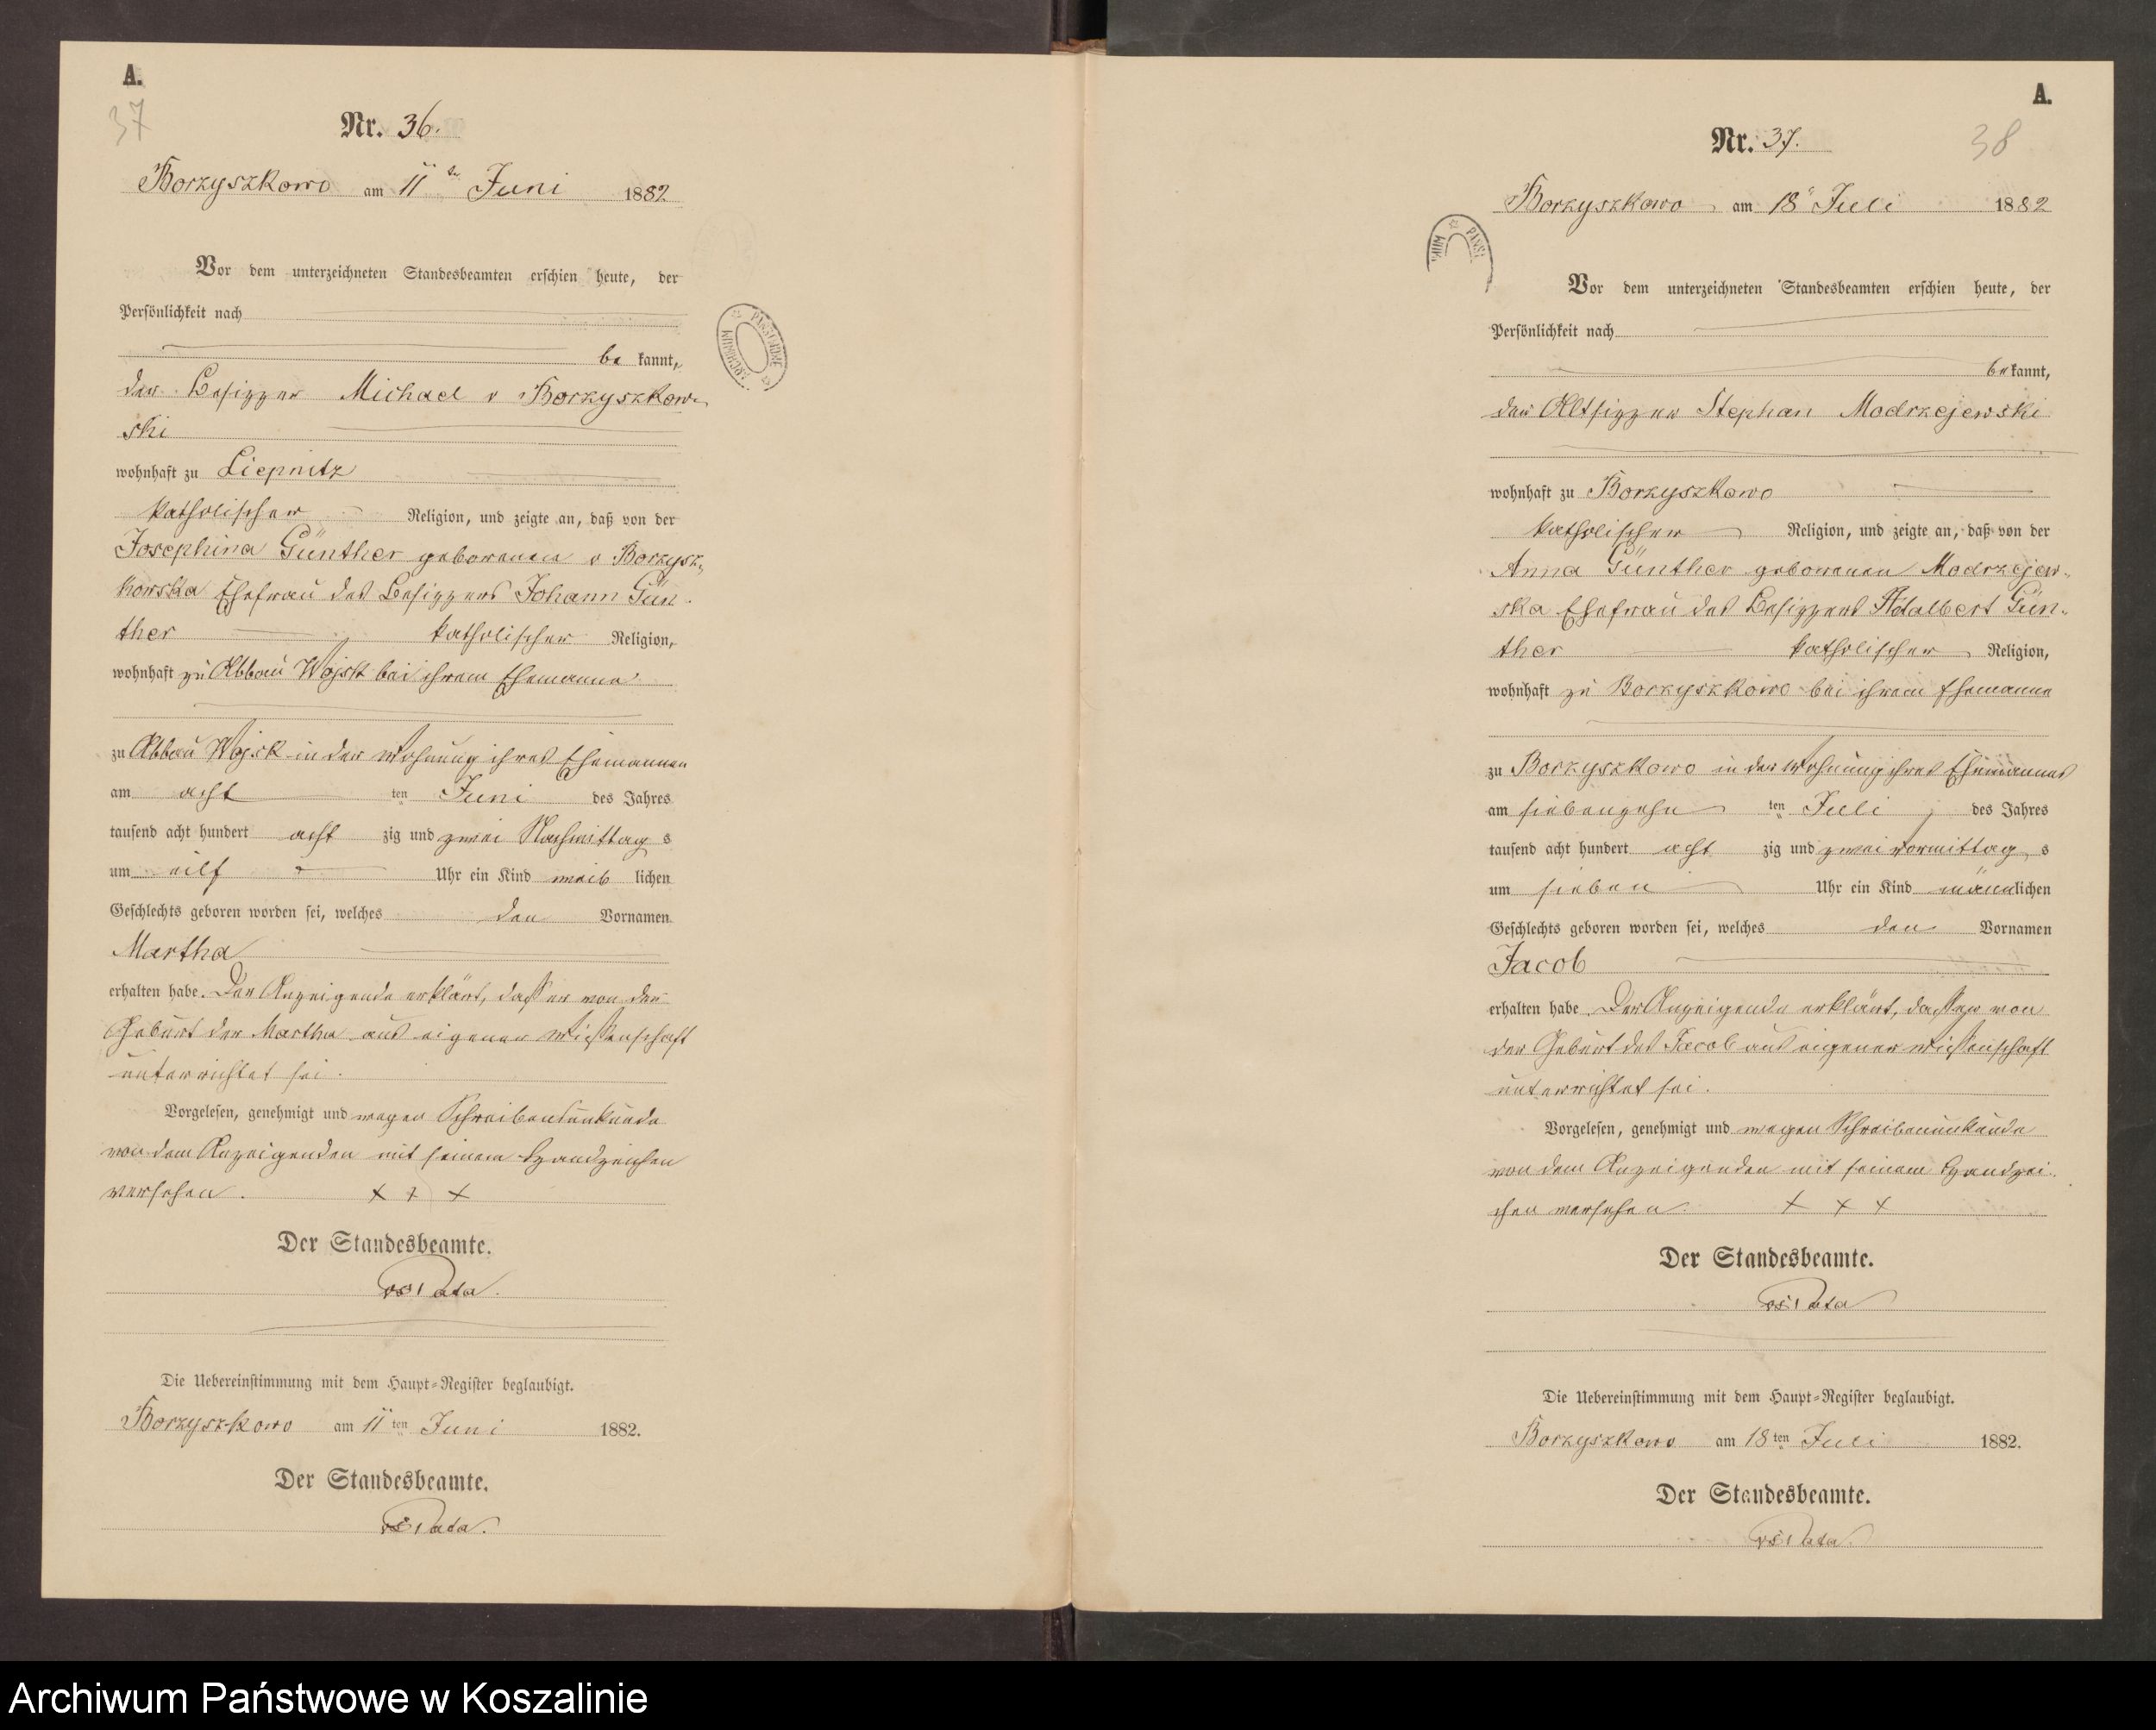 A.
37
Nr. 36.
Borzyszkowo am 11ten Juni 1882
Vor dem unterzeichneten Standesbeamten erschien heute, der
Persönlichkeit nach
be kannt,
der Besitzer Michael v Borzyszkow-
ski
wohnhaft zu Liepnitz
katholischer Religion, und zeigte an, daß von der
Josephina Günther geborenen v Borzysz-
kowska Ehefrau des Besitzers Johann Gün-
ther katholischer Religion,
wohnhaft zu Abbau Wojsk bei ihrem Ehemanne
zu Abbau Wojsk in der Wohnung ihres Ehemannes
am acht ten Juni des Jahres
tausend acht hundert acht zig und zwei Nachmittag s
um eilf Uhr ein Kind weib lichen
Geschlechts geboren worden sei, welches den Vornamen
Martha
erhalten habe. Der Anzeigende erklärt, dass er von der
Geburt der Martha aus eigener Wissenschaft
unterrichtet sei.
Vorgelesen, genehmigt und wegen Schreibensunkunde
von dem Anzeigenden mit seinem Handzeichen
versehen. + + +
Der Standesbeamte.
Die Uebereinstimmung mit dem Haupt-Register beglaubigt.
Borzyszkowo am 11ten Juni 1882.
Der Standesbeamte.
A.
38
Nr. 37.
Borzyszkowo am 18 Juli 1882
Vor dem unterzeichneten Standesbeamten erschien heute, der
Persönlichkeit nach
be kannt,
der Altsitzer Stephan Modrzejewski
wohnhaft zu Borzyszkowo
katholischer Religion, und zeigte an, daß von der
Anna Günther geborenen Modrzejew-
ska Ehefrau des Besitzers Adalbert Gün-
ther katholischer Religion,
wohnhaft zu Borzyszkowo bei ihrem Ehemanne
zu Borzyszkowo in der Wohnung ihres Ehemannes
am siebenzehn ten Juli des Jahres
tausend acht hundert acht zig und zwei Vormittag s
um sieben Uhr ein Kind männlichen
Geschlechts geboren worden sei, welches den Vornamen
Jacob
erhalten habe. Der Anzeigende erklärt, dass er von
der Geburt des Jacob aus eigener Wissenschaft
unterrichtet sei.
Vorgelesen, genehmigt und wegen Schreibenunkunde
von dem Anzeigenden mit seinem Handzei-
chen versehen. + + +
Der Standesbeamte.
Die Uebereinstimmung mit dem Haupt-Register beglaubigt.
Borzyszkowo am 18ten Juli 1882.
Der Standesbeamte.
Archiwum Państwowe w Koszalinie